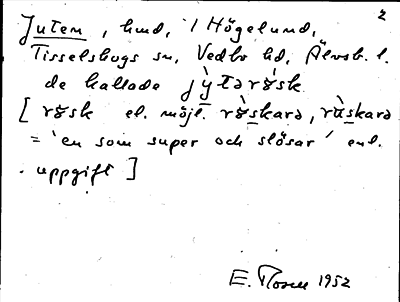 2
Juten, hund, i Högelund,
Tisselskogs sn, Vedbo hd, Älvsb. l.
de kallade jỳtərø̀sk
[røsk el. möjl. rø̀skarə, rùskarə
= 'en som super och slösar' enl.
uppgift]
E. 1952